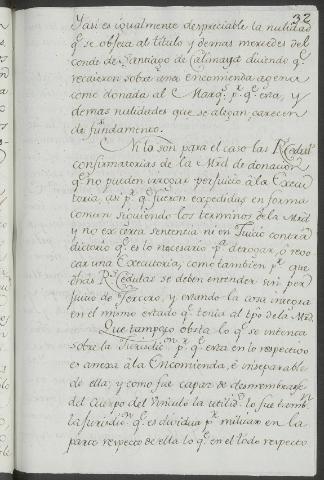 32
Y asi es igualmente despreciable la nulidad
qe. se objeta al titulo y demas mercedes del
conde de Santiago de Calimaya diciendo qe.
recaieron sobre una encomienda agena
como donada al Marqs. pr. qe. esta, y
demas nulidades que se alegan carecen
de fundamento.
Ni lo son para el caso las Rs. Cedulas
confirmatorias de la Mrd de donacion
qe. no pueden irrogar perjuicio â la Execu
toria, asi pr. qe. fueron expedidas en forma
comun siguiendo los terminos de la Mrd
y no ex certa sentencia ni en Juicio contra
dictorio qe. es lo necesario pa. derogar, ô revo
car una Executoria, como tambien pr. que
dhas Rs. Cedulas se deben entender sin per
juicio de Tercero, y estando la cosa integra
en el mismo estado qe. tenia al tpo de la Mrd.
Que tampoco obsta lo qe. se intenta
sobre la Jurisdicn. pr. qe. esta en lo respectivo
es anexa â la Encomienda, è inseparable
de ella, y como fue capaz de desmembrarse
del Cuerpo del Vinculo la utilidd. lo fue tambn.
la Jurisdicn. qe. es dividua pr. militar en la
parte respecto de ella lo qe. en el todo respecto